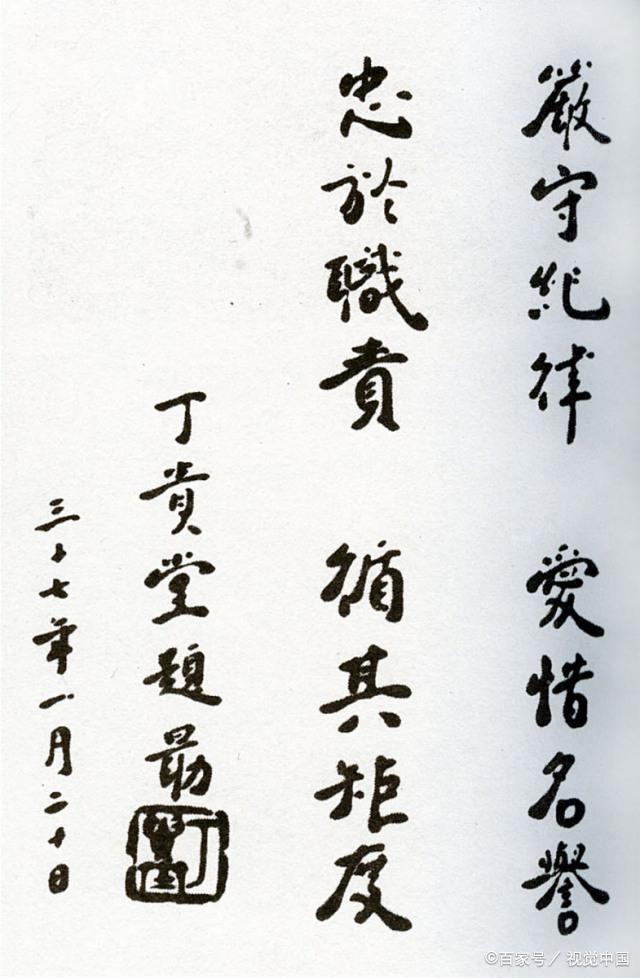 嚴守紀律 愛惜名譽
忠於職責 循其矩度
丁貴堂題勗
三十七年一月二十日
©百家号/视觉中国